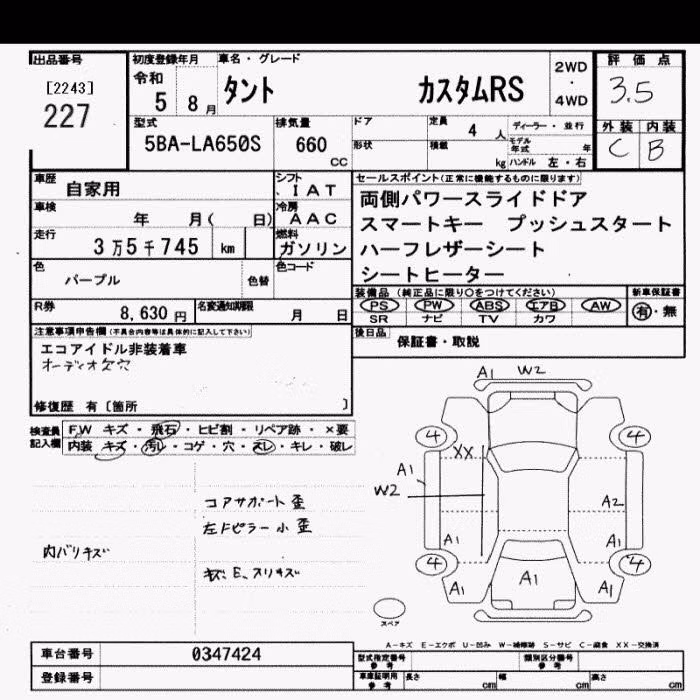 出品番号
[2243]
227
初度登録年月
令和
5 8月
車名・グレード
タント カスタムRS
2WD
・
4WD
評価点
3.5
外装 内装
C B
型式
5BA-LA650S
排気量
660
CC
ドア
形状
定員 4 人
積載 kg
ディーラー・並行
モデル年式 年
ハンドル 左・右
車歴 自家用
シフト
IAT
車検 年 月( 日)
冷房
AAC
走行 3万5千745 km
燃料
ガソリン
色 パープル 色替
色コード
R券 8,630円
名変通知期限 月 日
セールスポイント(正常に機能するものに限ります)
両側パワースライドドア
スマートキー プッシュスタート
ハーフレザーシート
シートヒーター
装備品(純正品に限り○をつけてください)
PS PW ABS エアB AW
SR ナビ TV カワ
新車保証書
有・無
後日品 保証書・取説
注意事項申告欄(不具合内容等は具体的に記入して下さい)
エコアイドル非装着車
オーディオ欠穴
修復歴 有〔箇所 〕
検査員記入欄
FW キズ・飛石・ヒビ割・リペア跡・×要
内装 キズ・汚レ・コゲ・穴・スレ・キレ・破レ
コアサポート歪
左Fピラー小歪
内バリキズ
キズ、E、スリキズ
A1 W2
4 4
XX
A1
W2
A2
A1 A1
4 4
A1 A1 A1
スペア
A-キズ E-エクボ U-凹み W-補修跡 S-サビ C-腐食 XX-交換済
車台番号 0347424
登録番号
型式指定番号
参考
類別区分番号
参考
車庫証明用
参考
長さ cm
幅 cm
高さ cm